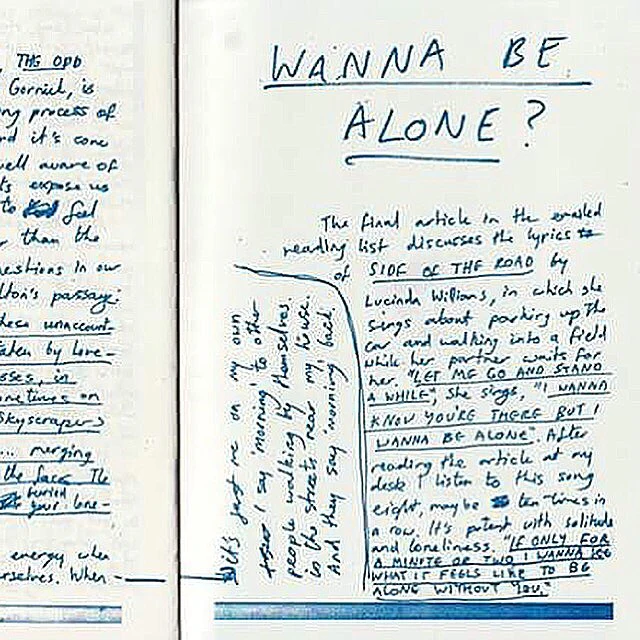 , THE ODD
Gornick, is
ng process of
rd it's come
well aware of
ts expose us
to feel
r than the
uestions in our
lton's passage:
these unaccount-
taken by lone-
sses, in
metimes on
Skyscrapers
... merging
the face. The
buried
your lone-
energy when
rselves. When
WANNA BE
ALONE?
The final article in the emailed
reading list discusses the lyrics
of SIDE OF THE ROAD by
Lucinda Willians, in which she
sings about parking up the
car and walking into a field
while her partner waits for
her. "LET ME GO AND STAND
A WHILE", she sings, "I WANNA
KNOW YOU'RE THERE BUT I
WANNA BE ALONE". After
reading the article at my
desk I listen to this song
eight, maybe ten times in
a row. It's potent with solitude
and loneliness. "IF ONLY FOR
A MINUTE OR TWO I WANNA SEE
WHAT IT FEELS LIKE TO BE
ALONE WITHOUT YOU."
It's just me on my own
I say 'morning' to other
people walking by themselves
in the streets near my house.
And they say 'morning' back.